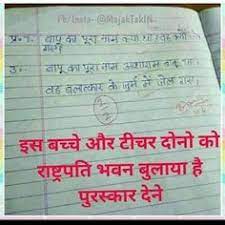 Pb/Insta- @MajakTakIN
प्र.1. बापू का पूरा नाम क्या था
उ. बापू का पूरा नाम आशाराम बापू था।
वह बलात्कार के जुर्म में जेल गए।
2/2
इस बच्चे और टीचर दोनो को
राष्ट्रपति भवन बुलाया है
पुरस्कार देने